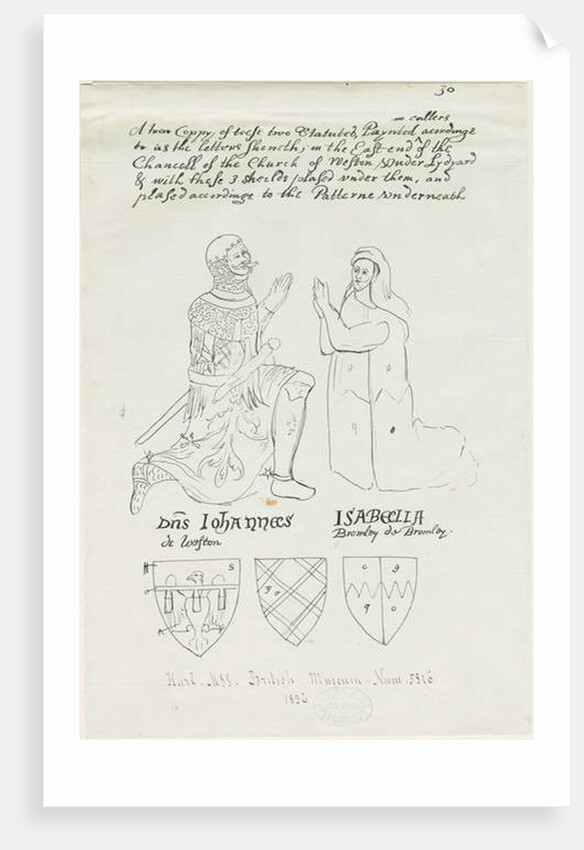 30
in cullers
A trew Coppy of these two Statutes, Paynted acordinge
to as the letters sheweth, in the East end of the
Chancell of the Church of Weston Vnder Lydyard
& with these 3 sheilds plased vnder them, and
plased accordinge to the Patterne Vnderneath
9
9
Dn̄s IohANNES
ISABELLA
de Weston
Bromley de Bromley
S
c 9
9 o
Harl. MSS. British Museum Num. 5816
1892